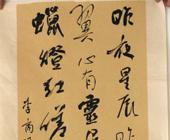 昨夜星辰昨
翼心有靈犀
蠟燈紅
李商